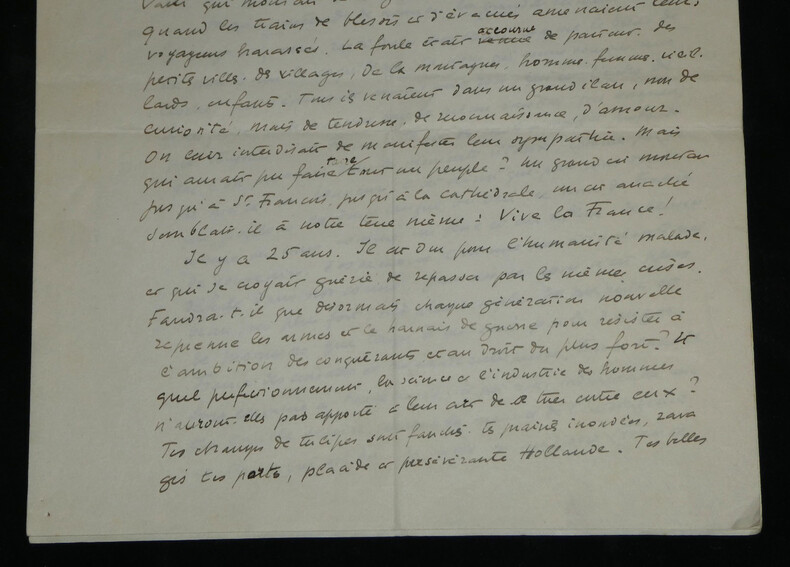 quand les trains de blessés et d'évacués amenaient leurs
voyageurs harassés. La foule était accourue venue de partout, des
petits villes, des villages, de la montagne, homme, femme, vieil-
lards, enfants. Tous ils venaient dans un grand élan, non de
curiosité, mais de tendresse, de reconnaissance, d'amour.
On leur interdisait de manifester leur sympathie. Mais
qui aurait pu faire taire tout un peuple? Un grand cri montait
jusqu'à St. François, jusqu'à la cathédrale, un cri arraché
semblait-il à notre terre même: Vive la France!
Il y a 25 ans. Il est dur pour l'humanité malade,
et qui se croyait guérie de repasser par les mêmes crises.
Faudra-t-il que désormais chaque génération nouvelle
reprenne les armes et le harnais de guerre pour résister à
l'ambition des conquérants et au droit du plus fort? Et
quel perfectionnement, la science et l'industrie des hommes
n'auront-elles pas apporté à leur art de se tuer entre eux?
Tes champs de tulipes sont fauchés, tes plaines inondées, rava
gés tes ports, placide et persévérante Hollande. Tes belles